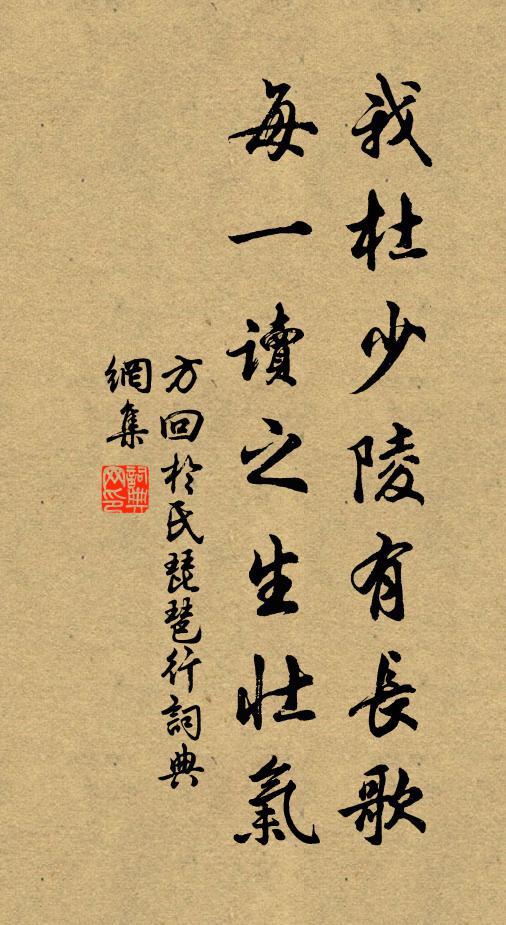 我杜少陵有長歌
每一讀之生壯氣
方回於氏琵琶行詞典
網集
詞典
网印